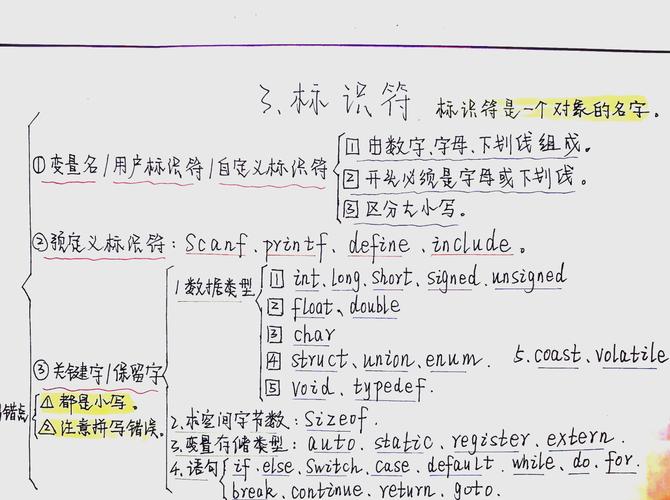 3、标识符 标识符是一个对象的名字。
①变量名/用户标识符/自定义标识符
1 由数字、字母、下划线组成。
2 开头必须是字母或下划线。
3 区分大小写。
②预定义标识符:Scanf、printf、define、include。
③关键字/保留字
1 数据类型
1 int、long、short、signed、unsigned
2 float、double
3 char
4 struct、union、enum.
5 void、typedef.
5.coast、volatile
易错点
△ 都是小写。
② 注意拼写错误。
2、求空间字节数:Sizeof.
3、变量存储类型:auto、static、register、extern.
4、语句
if、else、Switch、case、default、while、do、for.
break、continue、return、goto.